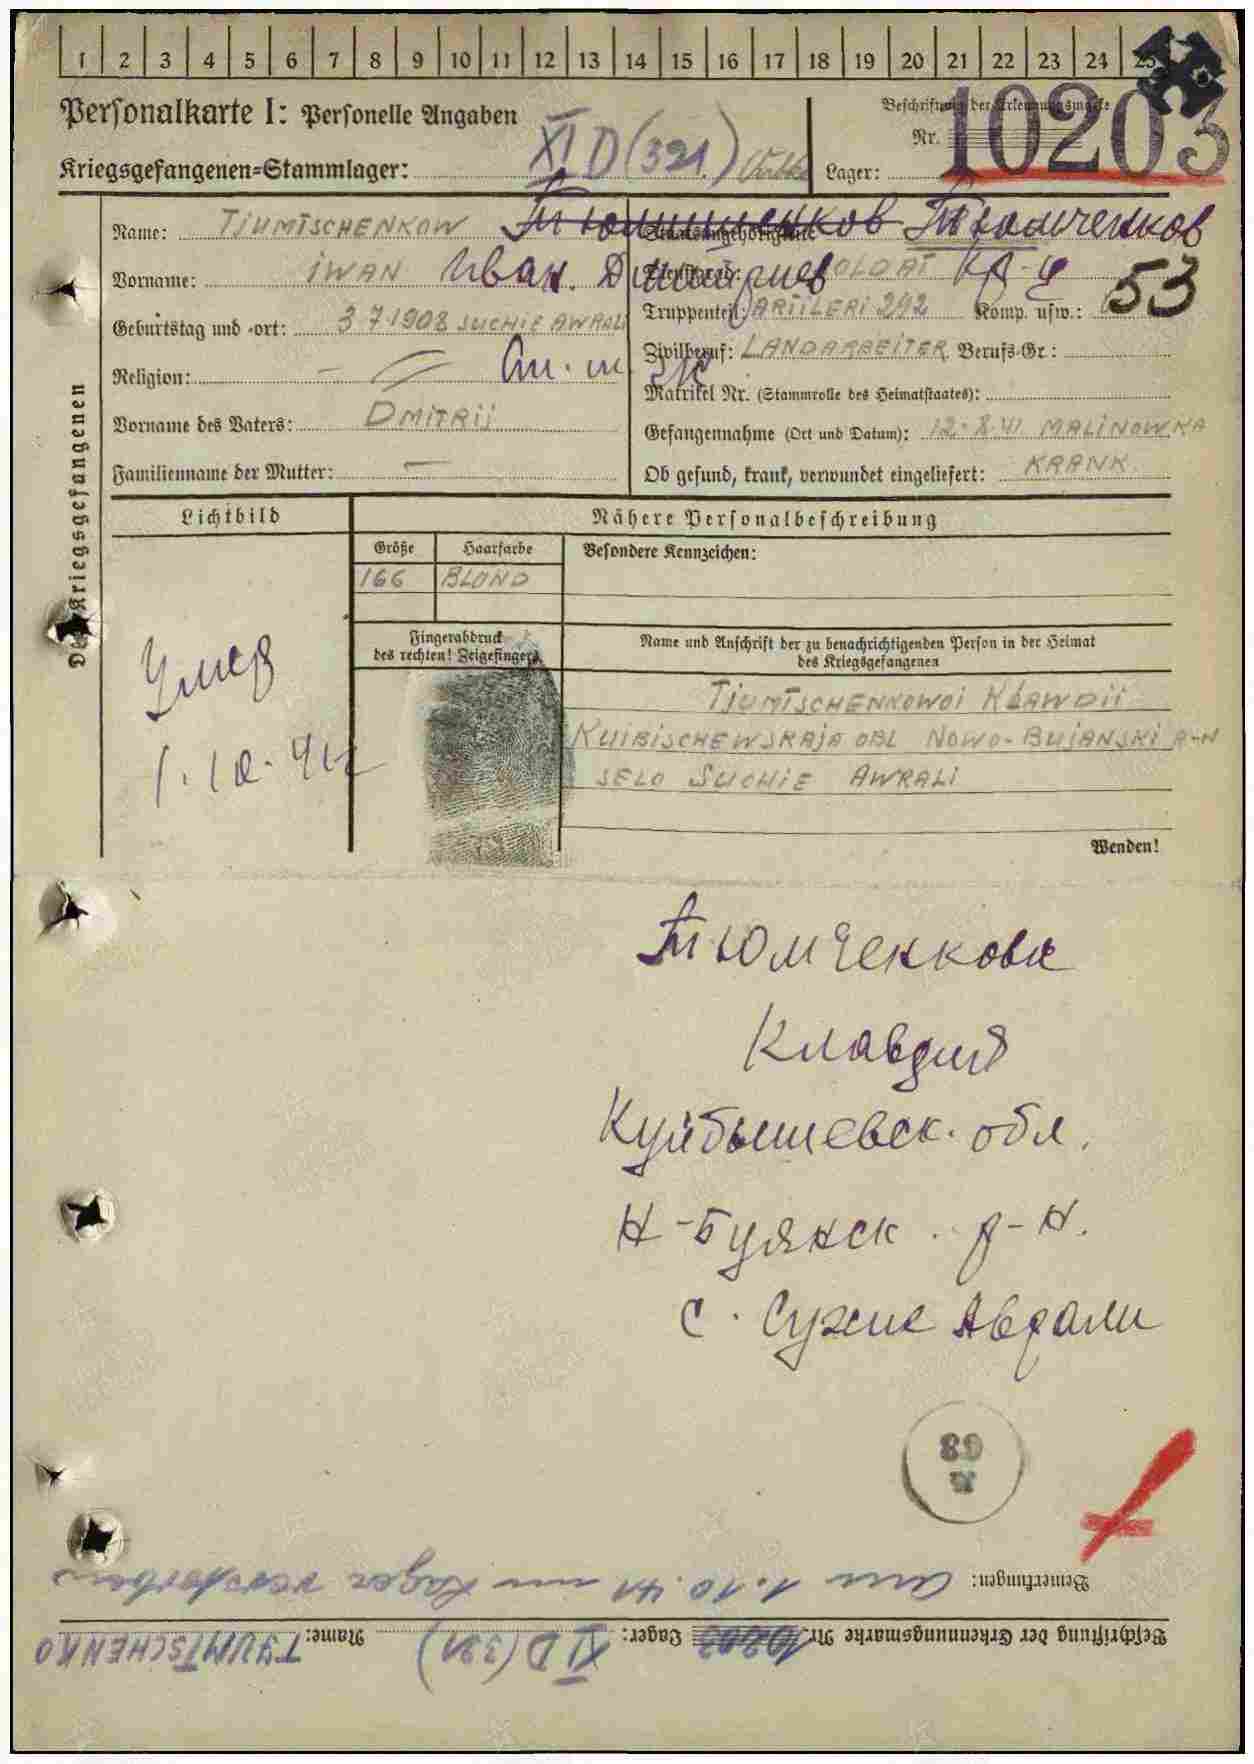 1 2 3 4 5 6 7 8 9 10 11 12 13 14 15 16 17 18 19 20 21 22 23 24 25
Personalkarte I: Personelle Angaben
Beschriftung der Erkennungsmarke
Nr. 10203
Kriegsgefangenen=Stammlager: XI D (321)
Lager:
Des Kriegsgefangenen
Name: TJUMTSCHENKOW Тюмченков
Staatsangehörigkeit:
Vorname: IWAN Иван Дмитриев
Dienstgrad: SOLDAT кр-ц
53
Geburtstag und -ort: 3.7.1908 SUCHIE AWRALI
Truppenteil: ARTILERI 292 Komp. usw.:
Zivilberuf: LANDARBEITER Berufs-Gr.:
Religion: —
Matrikel Nr. (Stammrolle des Heimatstaates):
Vorname des Vaters: DMITRIJ
Gefangennahme (Ort und Datum): MALINOWKA
Familienname der Mutter: —
Ob gesund, krank, verwundet eingeliefert: KRANK
Lichtbild
Nähere Personalbeschreibung
Größe Haarfarbe Besondere Kennzeichen:
166 BLOND
Fingerabdruck
des rechten! Zeigefingers
Name und Anschrift der zu benachrichtigenden Person in der Heimat
des Kriegsgefangenen
Умер
1.10.41г
TJUMTSCHENKOWOI KLAWDII
KUIBISCHEWSKAJA OBL NOWO-BUJANSKI R-N
SELO SUCHIE AWRALI
Wenden!
Тюмченкова
Клавдия
Куйбышевск. обл.
Н-Буянск. р-н.
с. Сухие Аврали
Bemerkungen: am 1.10.41 im Lager verstorben
Beschriftung der Erkennungsmarke Nr. 10203 Lager: XI D (321) Name: TJUMTSCHENKO